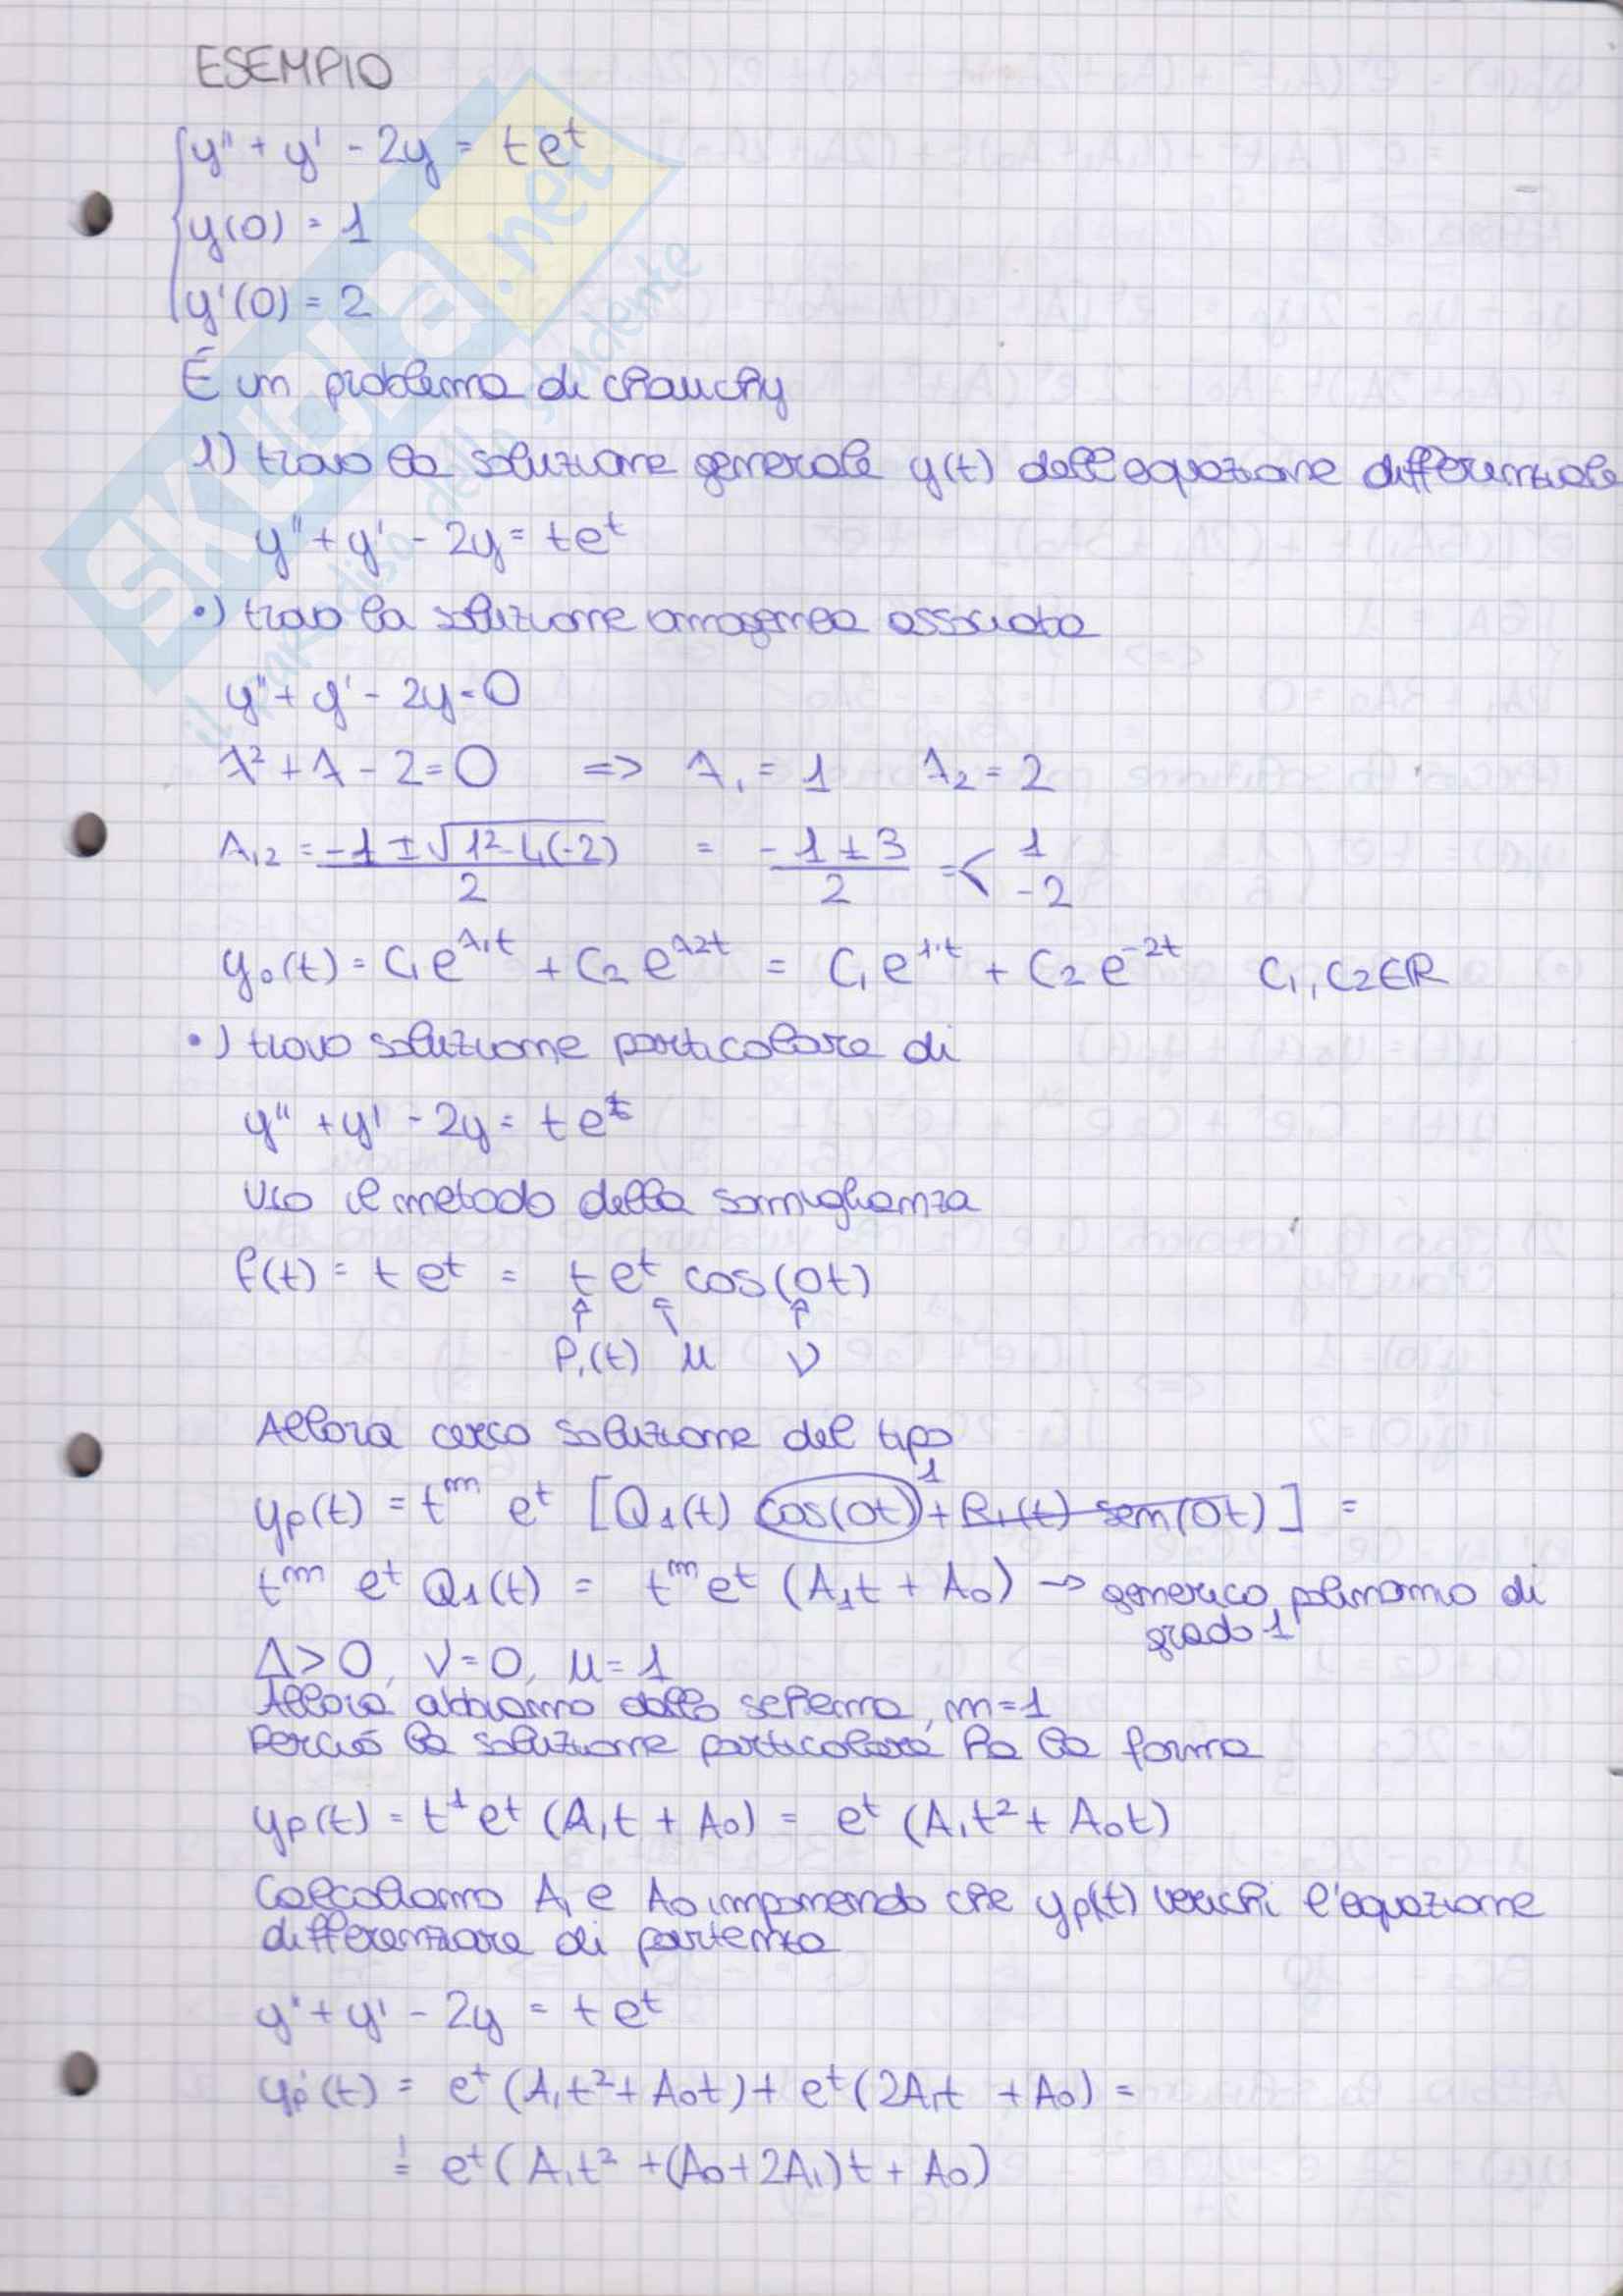 ESEMPIO
y'' + y' - 2y = t e^t
y(0) = 1
y'(0) = 2
É un problema di chauchy
1) trovo la soluzione generale y(t) dell'equazione differenziale
y'' + y' - 2y = t e^t
•) trovo la soluzione omogenea associata
y'' + y' - 2y = 0
λ² + λ - 2 = 0 => λ₁ = 1 λ₂ = 2
λ₁₂ = (-1 ± √(1² - 4(-2)))/2 = (-1 ± 3)/2 =< 1 -2
y₀(t) = C₁e^(λ₁t) + C₂e^(λ₂t) = C₁e^(1·t) + C₂e^(-2t) C₁, C₂ ∈ ℝ
•) trovo soluzione particolare di
y'' + y' - 2y = t e^t
Uso il metodo della somiglianza
f(t) = t e^t = t e^t cos(0t)
P₁(t) μ ν
Allora cerco soluzione del tipo
yp(t) = t^m e^t [Q₁(t) cos(0t) + R₁(t) sen(0t)] =
1
t^m e^t Q₁(t) = t^m e^t (A₁t + A₀) → generico polinomio di
grado 1
Δ > 0, ν = 0, μ = 1
Allora abbiamo dallo schema, m = 1
Perciò la soluzione particolare ha la forma
yp(t) = t¹ e^t (A₁t + A₀) = e^t (A₁t² + A₀t)
Calcoliamo A₁ e A₀ imponendo che yp(t) verichi l'equazione
differenziare di partenza
y'' + y' - 2y = t e^t
yp'(t) = e^t (A₁t² + A₀t) + e^t (2A₁t + A₀) =
= e^t (A₁t² + (A₀ + 2A₁)t + A₀)
SKUOLA.net
il paradiso dello studente